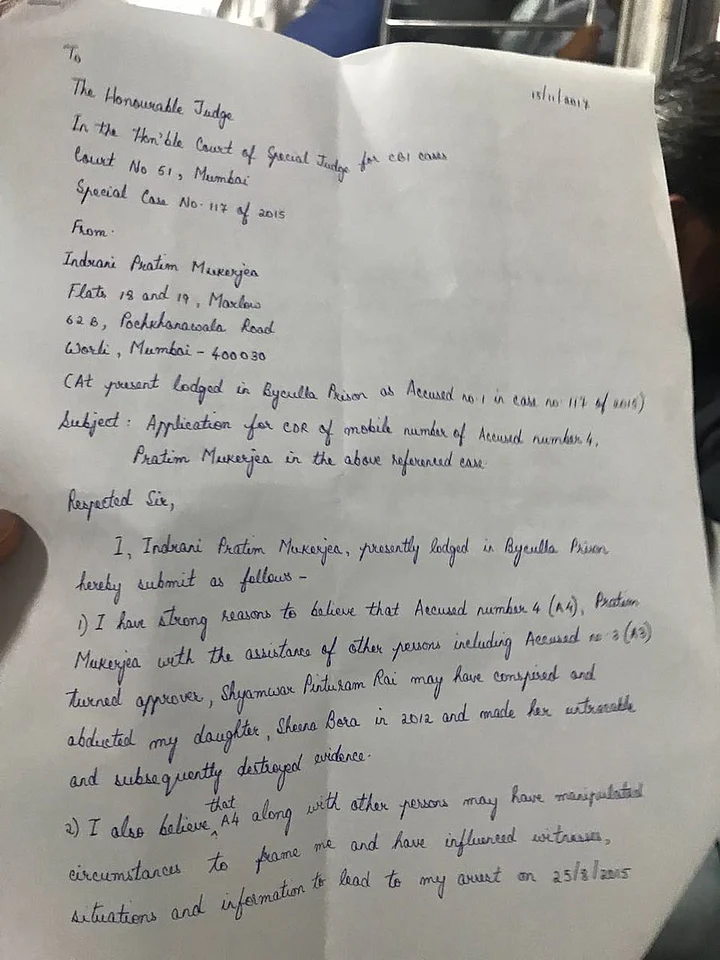 To
15/11/2017
The Honourable Judge
In the Hon'ble Court of Special Judge for CBI cases
Court No 51, Mumbai
Special Case No. 117 of 2015
From.
Indrani Pratim Mukerjea
Flats 18 and 19, Marlow
62 B, Pochkhanawala Road
Worli, Mumbai - 400030
(At present lodged in Byculla Prison as Accused no. 1 in case no. 117 of 2015)
Subject: Application for CDR of mobile number of Accused number 4,
Pratim Mukerjea in the above referenced case.
Respected Sir,
I, Indrani Pratim Mukerjea, presently lodged in Byculla Prison
hereby submit as follows -
1) I have strong reasons to believe that Accused number 4 (A4), Pratim
Mukerjea with the assistance of other persons including Accused no 3 (A3)
turned approver, Shyamwar Pinturam Rai may have conspired and
abducted my daughter, Sheena Bora in 2012 and made her untraceable
and subsequently destroyed evidence.
2) I also believe that A4 along with other persons may have manipulated
circumstances to frame me and have influenced witnesses,
situations and information to lead to my arrest on 25/8/2015